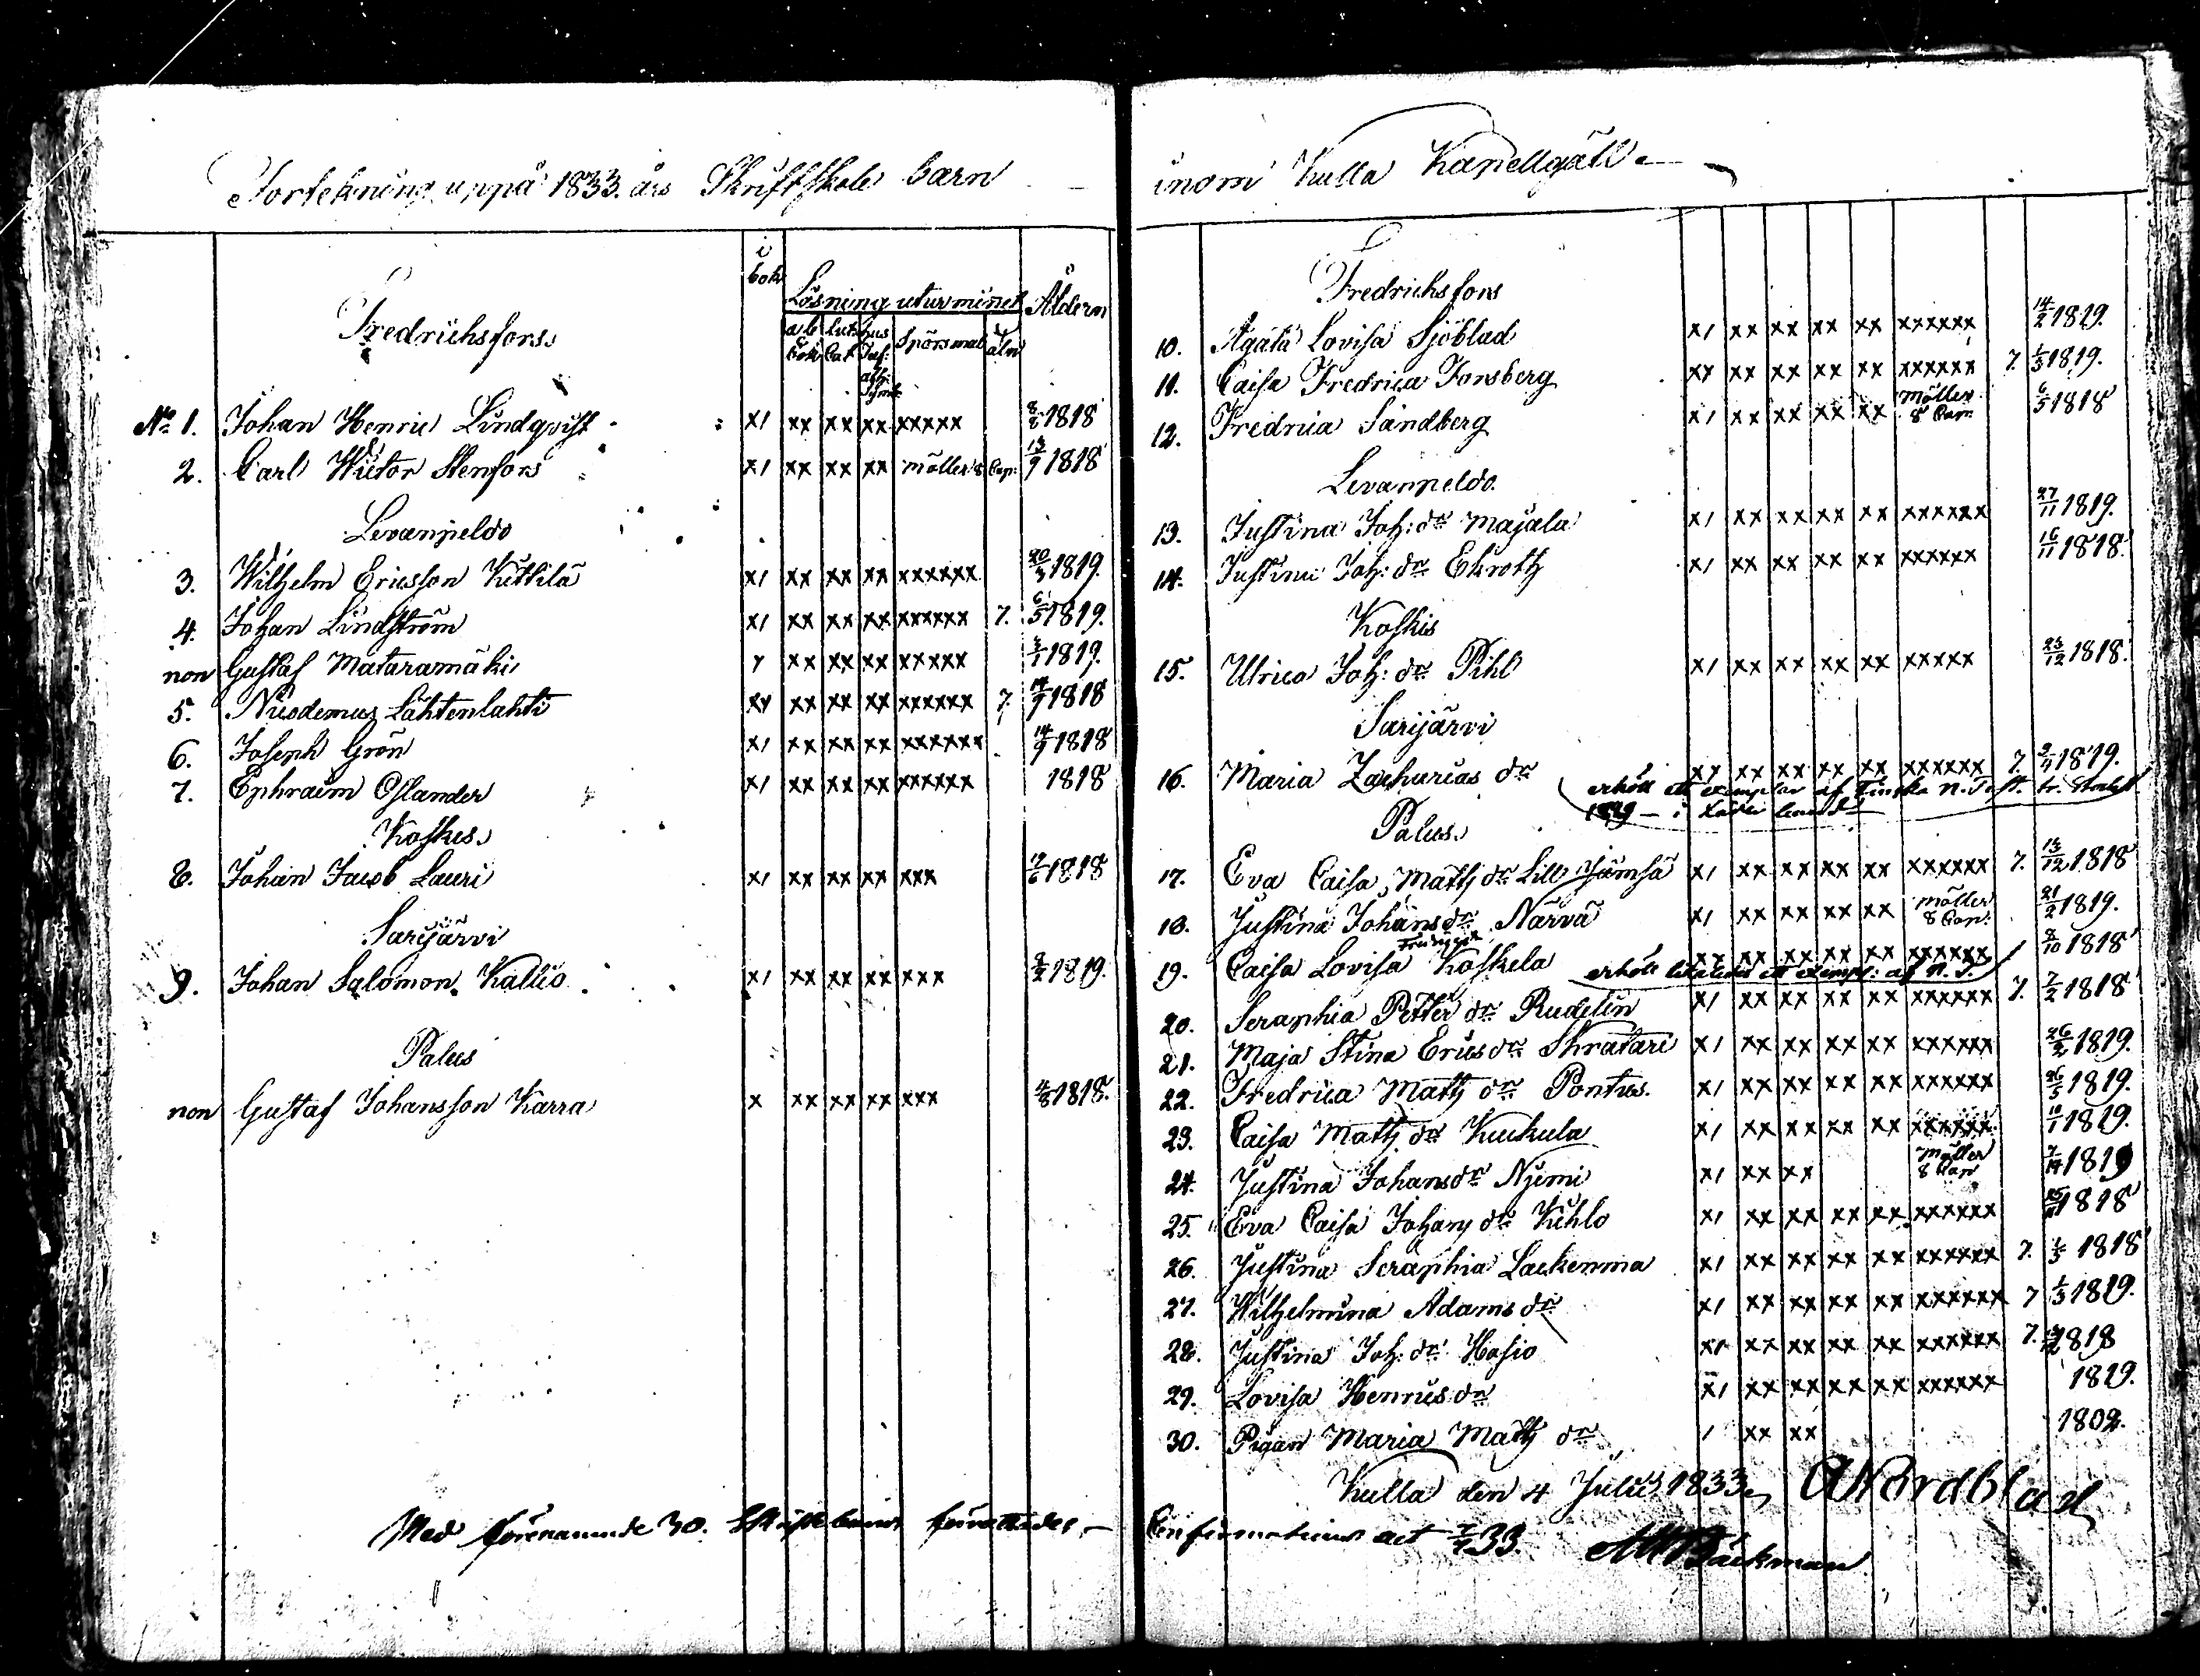 Förtekning uppå 1833. års Skriftskole barn
i bok
Läsning utur minet
Åldern
ab bok
Luth. Cat
Spörsmål
Fredrichsfors
No 1. Johan Henric Lindqvist x1 xx xx xx xxxxx 1818
2. Carl Victor Stenfors x1 xx xx xx möllers Cap: 13/9 1818
Levanpeldo
3. Wilhelm Ericsson Kittilä x1 xx xx xx xxxxxx 20/3 1819.
4. Johan Lindström x1 xx xx xx xxxxxx 7. 6/5 1819.
non Gustaf Mataramäki xx xx xx xxxxx 1819.
5. Nicodemus Lähtenlahti xx xx xx xxxxxx 7. 1818
6. Joseph Grön x1 xx xx xx xxxxxxx 14/9 1818
7. Ephraim Oslander x1 xx xx xx xxxxxx 1818
Koskis
8. Johan Jacob Lauri x1 xx xx xx xxx 1818
Sarijärvi
9. Johan Salomon Kallio x1 xx xx xx xxx 1819.
Palus
non Gustaf Johansson Karra x xx xx xx xxx 4/8 1818.
Med förenamnde 30. Skriftbarn förrättades
inom Kulla Kapellgäll
Fredrichsfors
10. Agata Lovisa Sjöblad x1 xx xx xx xx xxxxxx 14/2 1819.
11. Caisa Fredrica Forsberg xx xx xx xx xx xxxxxx 7. 1819.
12. Fredrica Sandberg x1 xx xx xx xx möller 8 Cap. 6/5 1818
Levanpeldo
13. Justina Joh: dr Majala x1 xx xx xx xx xxxxxx 27/11 1819.
14. Justina Joh: dr Ekroth x1 xx xx xx xx xxxxxx 16/11 1818.
Koskis
15. Ulrica Joh: dr Pihl x1 xx xx xx xx xxxxx 23/12 1818.
Sarijärvi
16. Maria Zacharias dr xx xx xx xx xxxxxx 7. 1819.
erhöll ett exemplar af Finska N. Test. tr.
Palus
17. Eva Caisa Math dr Lill Jämsä x1 xx xx xx xx xxxxxx 7. 13/12 1818
18. Justina Johans dr Närvä x1 xx xx xx xx möller 8 Cap. 21/2 1819.
19. Caisa Lovisa Koskela xx xx xx xx xxxxxx 8/10 1818
erhöll likaledes ett exempl: af N. T.
20. Seraphia Petter dr Rudelin x1 xx xx xx xx xxxxxx 7. 7/2 1818
21. Maja Stina Erics dr Skratari x1 xx xx xx xx xxxxxx 1819.
22. Fredrica Math dr Pontus. x1 xx xx xx xx xxxxxx 1819.
23. Caisa Math dr Kuckula x1 xx xx xx xx xxxxxx 1819.
24. Justina Johans dr Njemi x1 xx xx möller 8 Cap 1819
25. Eva Caisa Johans dr Kihlo x1 xx xx xx xx xxxxxx 1818
26. Justina Seraphia Lackemma x1 xx xx xx xx xxxxxx 7. 1818
27. Wilhelmina Adams dr x1 xx xx xx xx xxxxxx 7 1819.
28. Justina Joh: dr Hosio xx xx xx xx xxxxxx 7. 1818
29. Lovisa Henrics dr x1 xx xx xx xx xxxxxx 1819.
30. Pigan Maria Math dr 1 xx xx 1802.
Kulla den 4 Julii 1833 Nordblad
Confirmations act 33. Bäckman